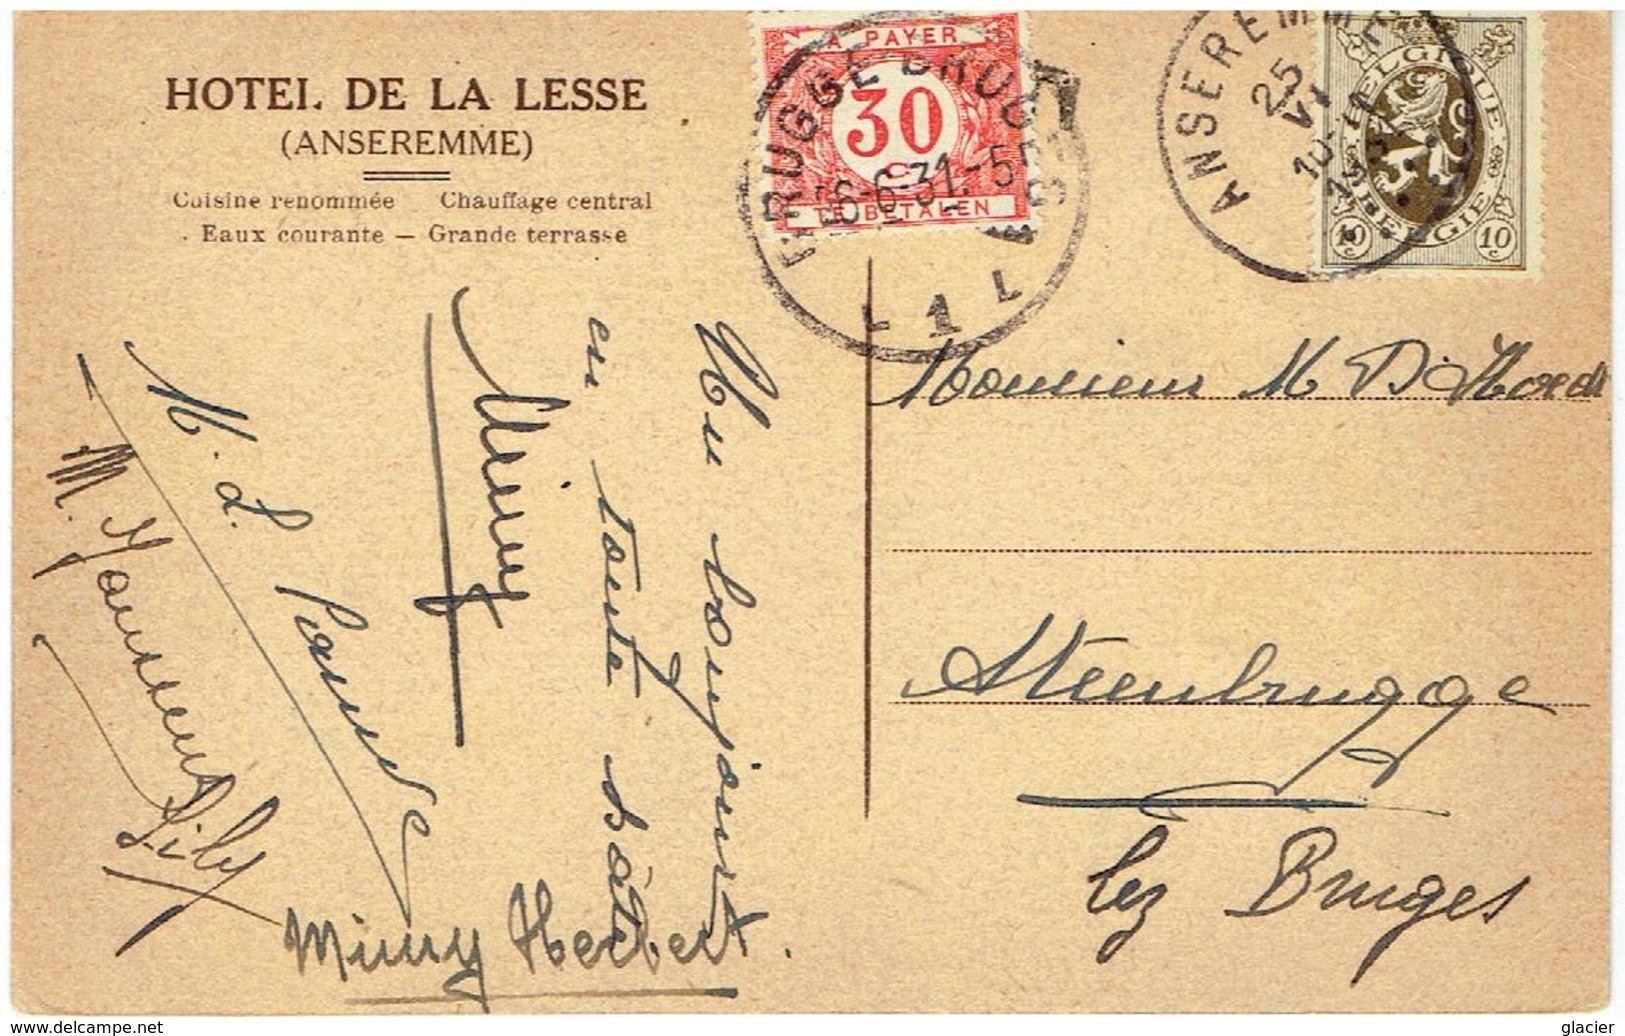 HOTEL DE LA LESSE
(ANSEREMME)
Cuisine renommée Chauffage central
Eaux courante — Grande terrasse
A PAYER
30
C
TE BETALEN
BRUGGE BRUG
6-6-31.-5
1
ANSEREMME
25
VI
10-11
1931
BELGIQUE
BELGIE
10 c 10 c
Monsieur M D'Hoedt
Steenbrugge
lez Bruges
Un bonjour
en toute hâte
Mimy
M. L.
M.
Lily
Mimy Herbert.
www.delcampe.net
glacier